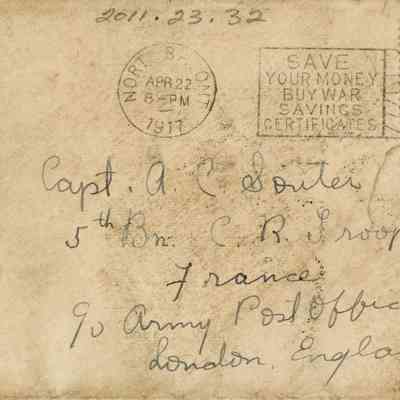 2011.23.32
NORTH BAY ONT
APR 22
8-PM
1917
SAVE
YOUR MONEY
BUY WAR
SAVINGS
CERTIFICATES
Capt. A. C Souter
5th Bn. C. R. Troop
France
c/o Army Post Offic
London, Engla